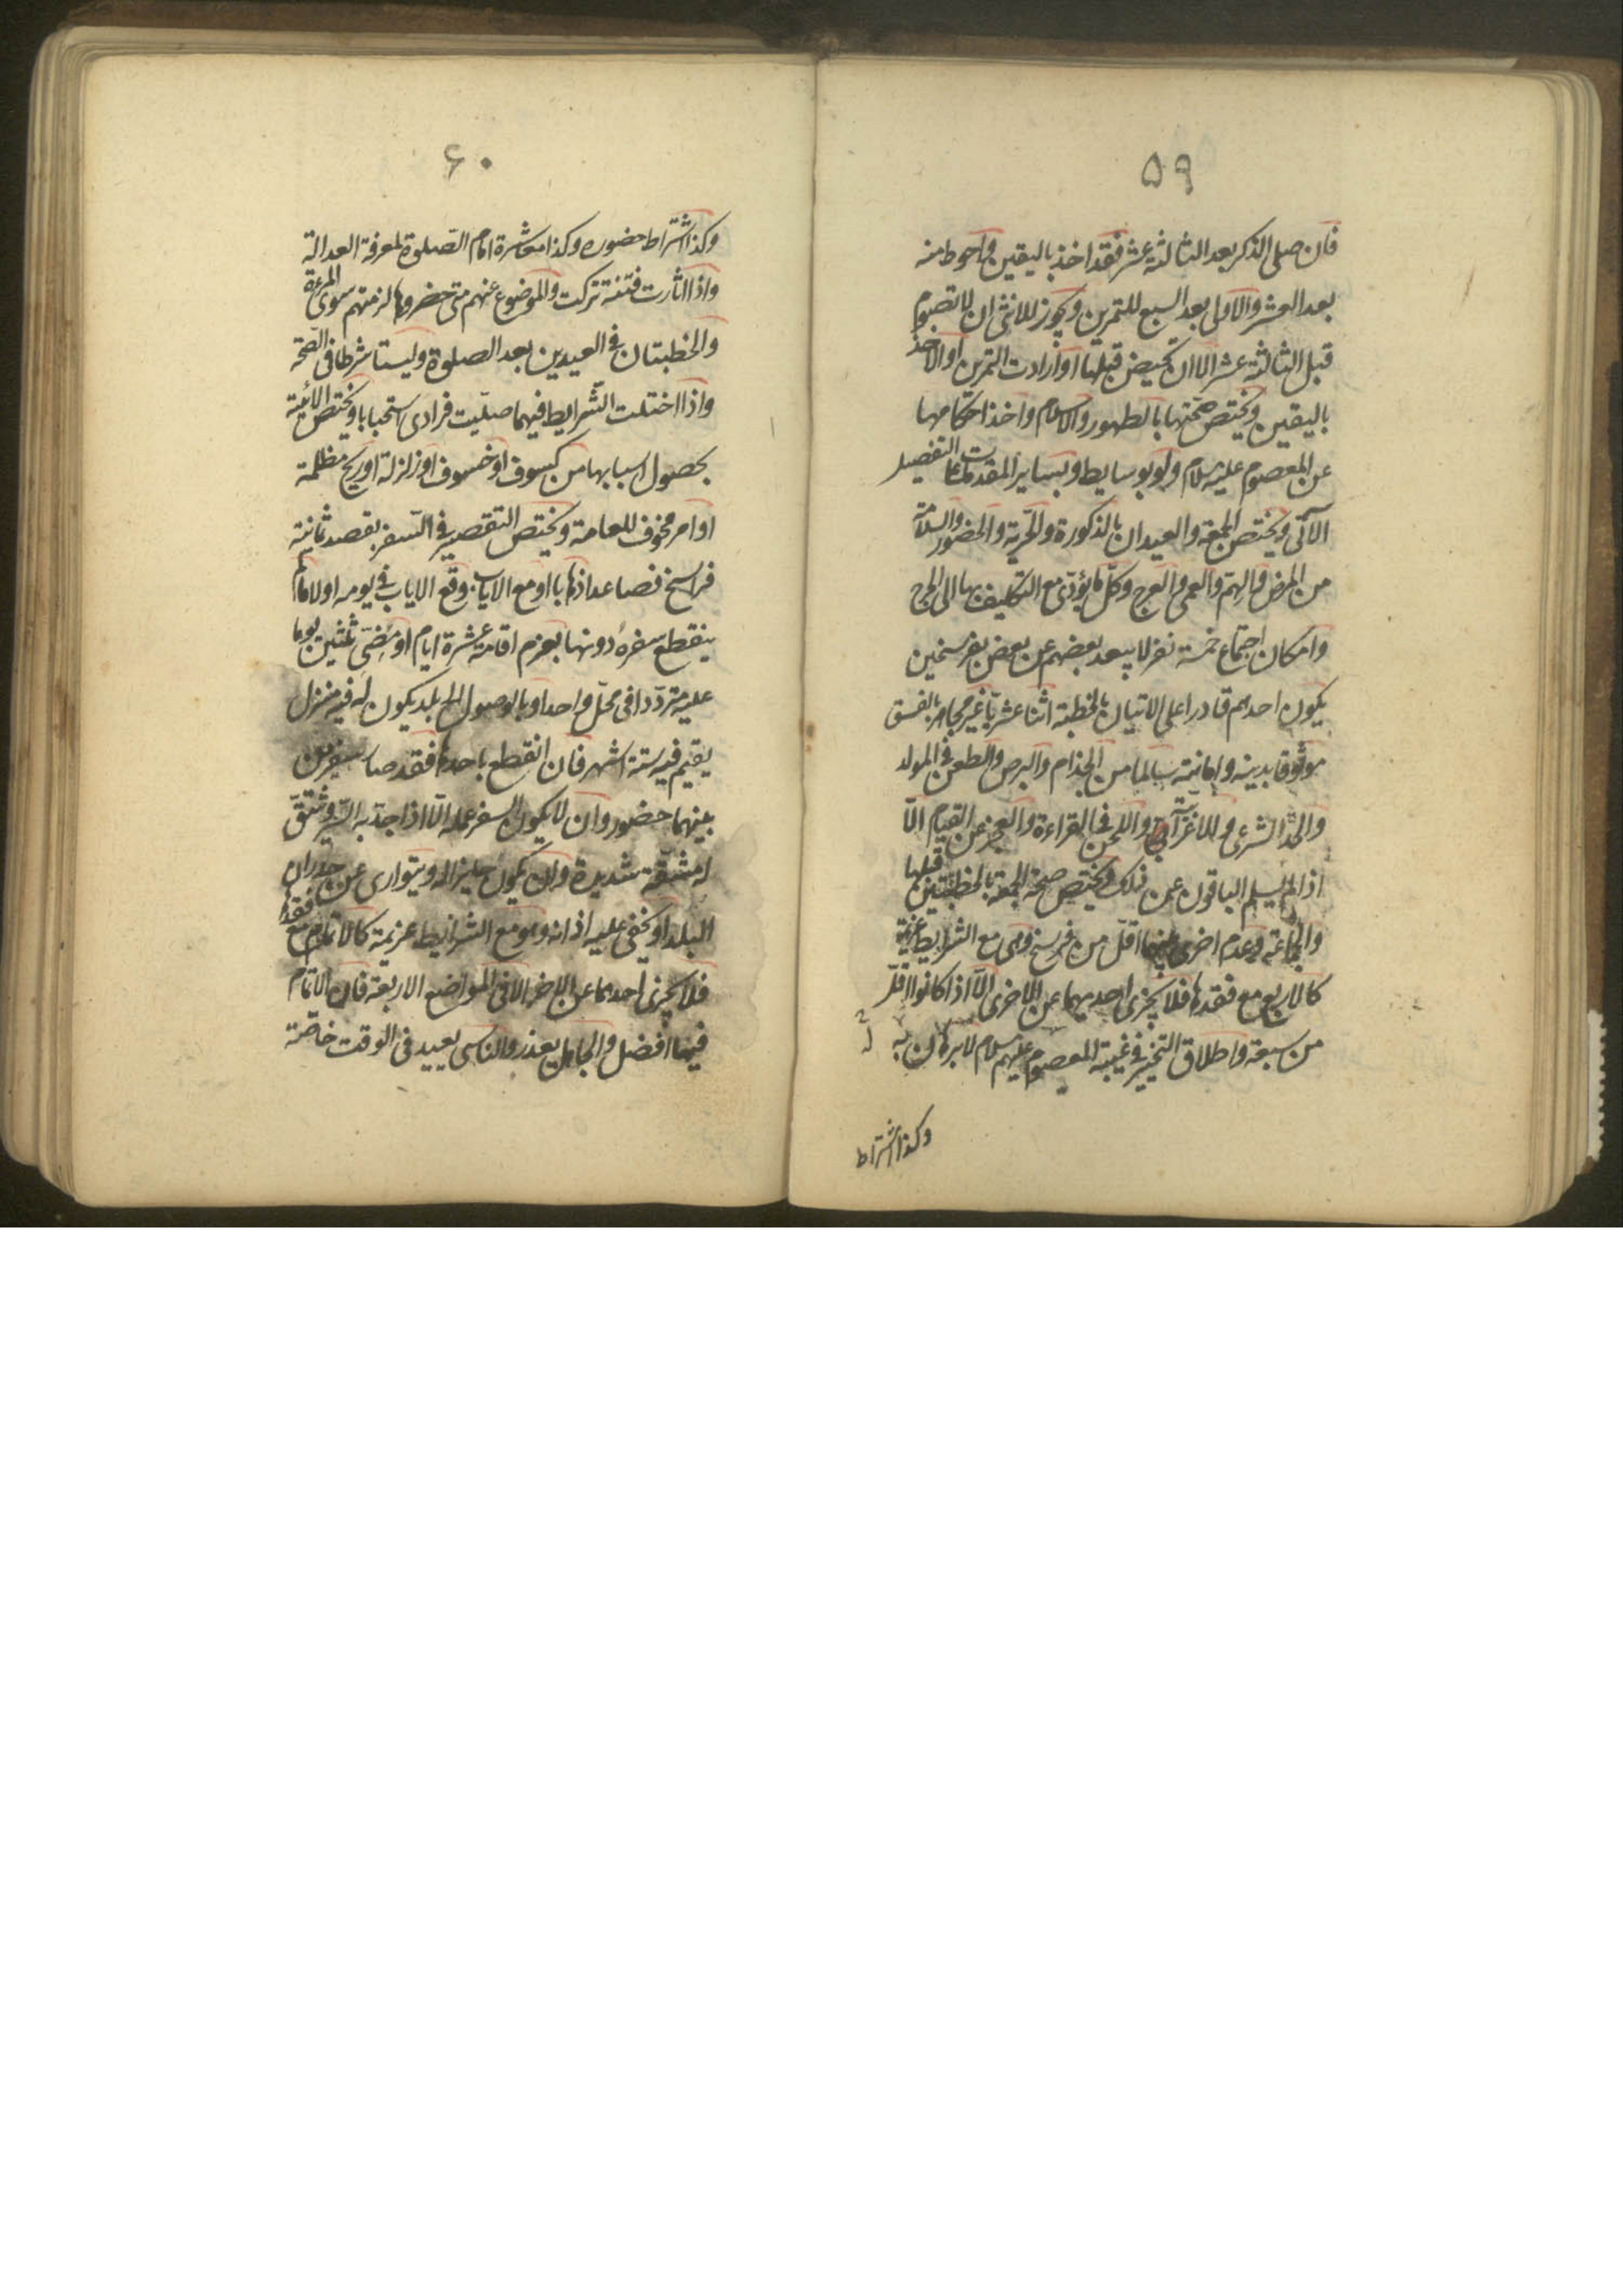 ۵۹
فان صلی الذکر بعد الثالثة عشر فقد اخذ بالیقین و احوط منه
بعد العشر والاولی بعد السبع للتمرین ویجوز للانثی ان لا تصوم
قبل الثالثة عشر الا ان تحیض قبلها او ارادت التمرین او الاخذ
بالیقین ویختص صحتها بالطهور والاسلام واخذ احکامها
عن المعصوم علیه السلام ولو بوسایط وبسایر المقدمات علی التفصیل
الآتی ویختص الجمعة والعیدان بالذکورة والحریة والحضور والسلامة
من المرض والهم والعمی والعرج وکل ما یؤدی مع التکلیف بها الی الحرج
وامکان اجتماع خمسة نفر لا یبعد بعضهم عن بعض بفرسخین
یکون احدهم قادرا علی الاتیان بالخطبة اثنا عشریا غیر مجاهر بالفسق
موثوقا بدینه وامانته سالما من الجذام والبرص والطعن فی المولد
والحد الشرعی والاعرابیة واللحن فی القراءة والعجز عن القیام الا
اذا لم یسلم الباقون عن ذلک ویختص صحة الجمعة بالخطبتین قبلها
والجماعة وعدم اخری بینهما اقل من فرسخ وهی مع الشرایط عزیمة
کالاربع مع فقدها فلا یجزی احدیهما عن الاخری الا اذا کانوا اقل
من سبعة واطلاق التخییر فی غیبة المعصوم علیهم السلام لا برهان به له
وکذا اشتراط
۶۰
وکذا اشتراط حضوره وکذا معاشرة امام الصلوة لمعرفة العدالة
واذا اثارت فتنة ترکت والموضوع عنهم متی حضروها لزمتهم سوی المرءة
والخطبتان فی العیدین بعد الصلوة ولیستا شرطا فی الصحة
واذا اختلت الشرایط فیهما صلیت فرادی استحبابا ویختص الآئیة
بحصول اسبابها من کسوف او خسوف او زلزلة او ریح مظلمة
او امر مخوف للعامة ویختص التقصیر فی السفر بقصد ثمانیة
فراسخ فصاعدا ذهابا او مع الایاب وقع الایاب فی یومه او لا ما لم
ینقطع سفره دونها بعزم اقامة عشرة ایام او مضی ثلثین یوما
علیه مترددا فی محل واحد او بالوصول الی بلد یکون له فیه منزل
یقیم فیه ستة اشهر فان انقطع باحدها فقد صار سفرین
بینهما حضور وان لا یکون السفر عمله الا اذا جد به السیر وشق
له مشقة شدیدة وان یکون جایزا له ویتواری عن جدران
البلد او یخفی علیه اذانه وهو مع الشرایط عزیمة کالاتمام مع فقدها
فلا یجزی احدهما عن الاخر الا فی المواضع الاربعة فان الاتمام
فیها افضل والجاهل یعذر والناسی یعید فی الوقت خاصة